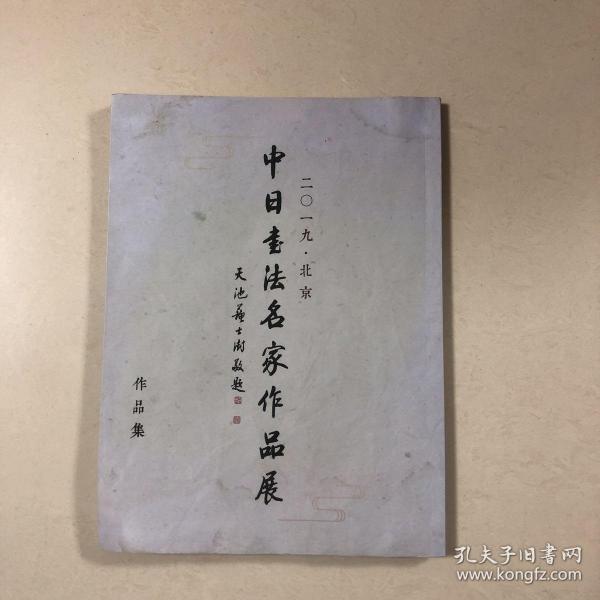 二〇一九·北京
中日書法名家作品展
天池蘇士澍敬題
作品集
孔夫子旧書网
www.kongfz.com